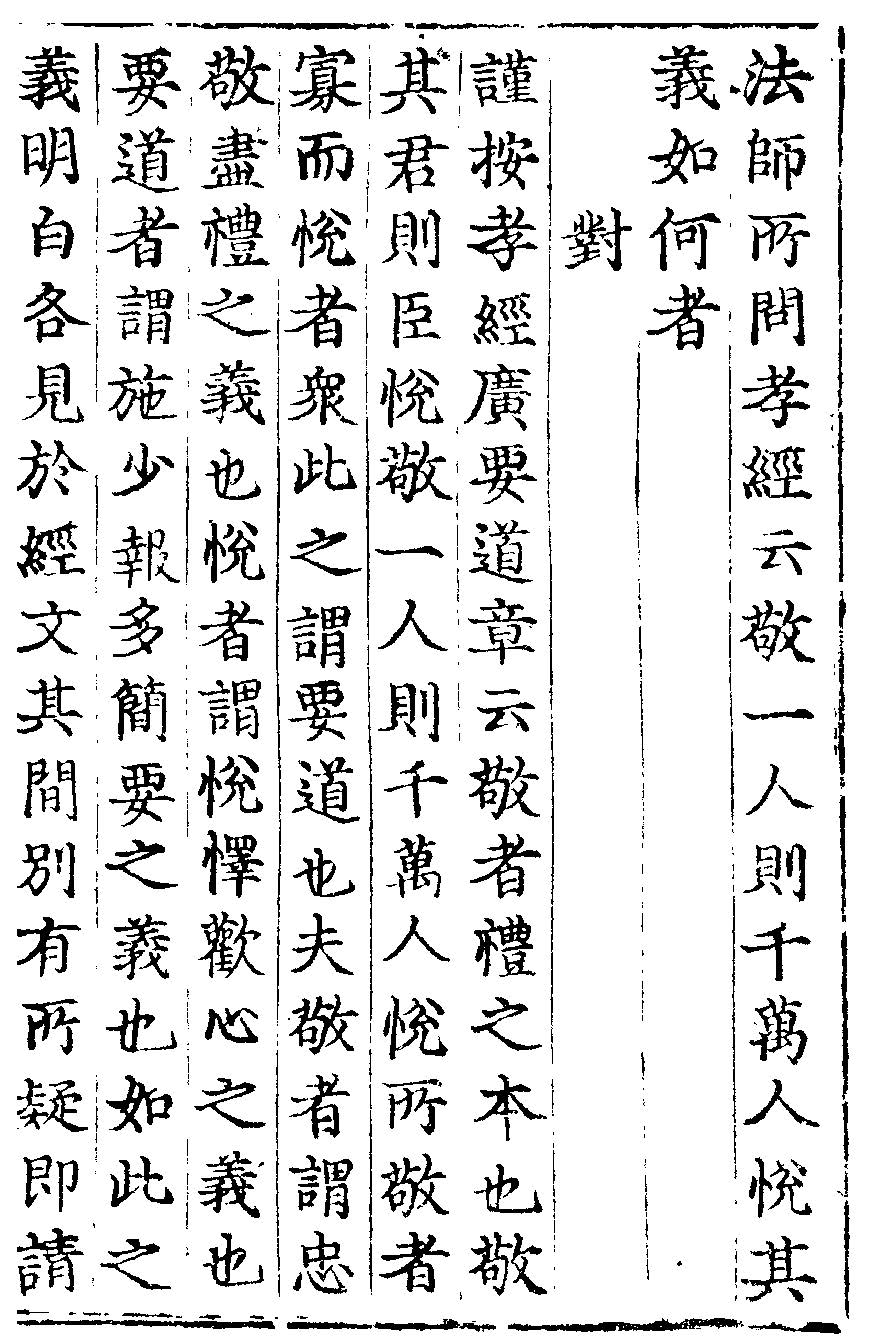 法師所問孝經云敬一人則千萬人悅其
義如何者
對
謹按孝經廣要道章云敬者禮之本也敬
其君則臣悅敬一人則千萬人悅所敬者
寡而悅者衆此之謂要道也夫敬者謂忠
敬盡禮之義也悅者謂悅懌歡心之義也
要道者謂施少報多簡要之義也如此之
義明白各見於經文其間別有所疑即請